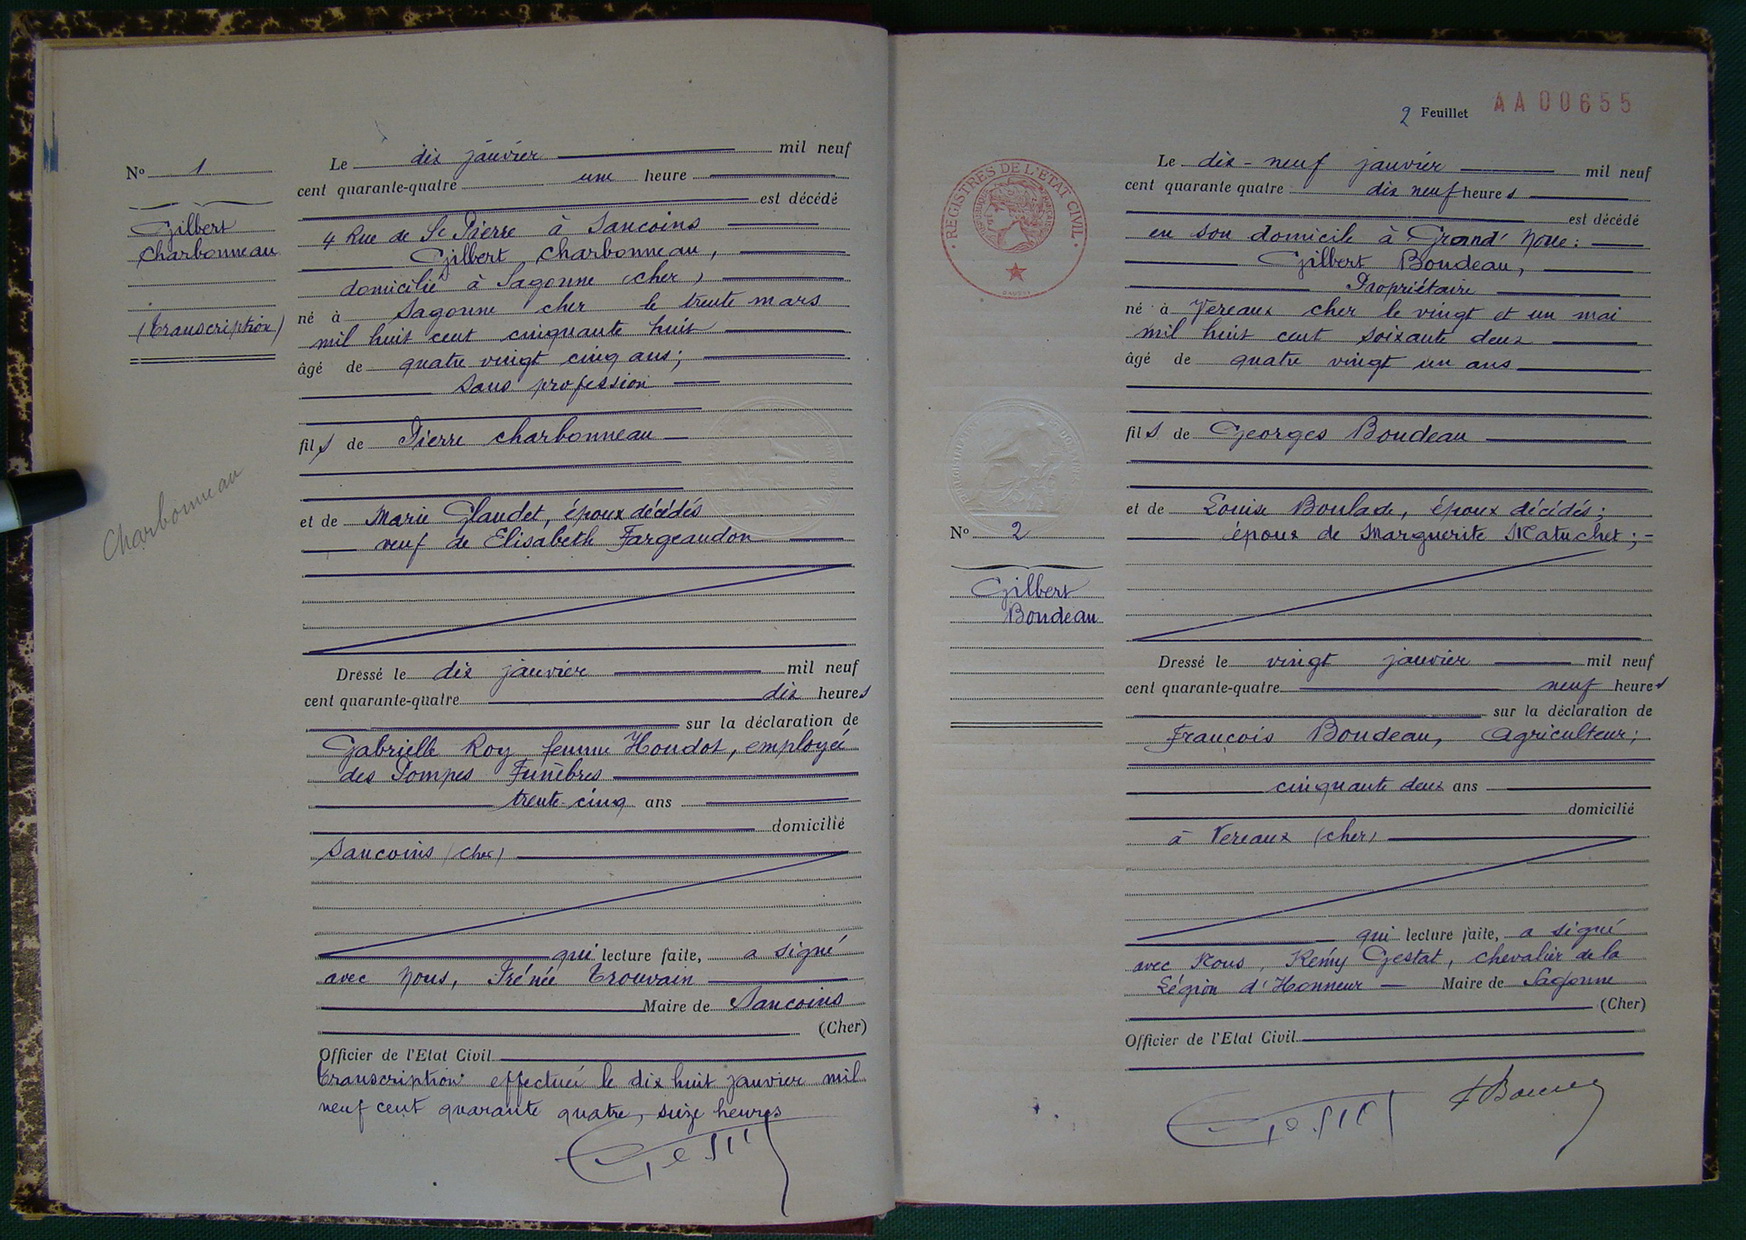 N° 1
Gilbert
Charbonneau
(Transcription)
Charbonneau
Le dix janvier mil neuf
cent quarante-quatre une heure
est décédé
4 Rue de St Pierre à Sancoins
Gilbert Charbonneau,
domicilié à Sagonne (Cher)
né à Sagonne Cher le trente mars
mil huit cent cinquante huit
âgé de quatre vingt cinq ans;
sans profession
fils de Pierre Charbonneau
et de Marie Glaudet, époux décédés
veuf de Elisabeth Fargeaudon
Dressé le dix janvier mil neuf
cent quarante-quatre dix heures
sur la déclaration de
Gabrielle Roy femme Houdot, employée
des Pompes Funèbres
trente-cinq ans
domicilié
Sancoins (Cher)
qui lecture faite, a signé
avec Nous, Irénée Trouvain
Maire de Sancoins
(Cher)
Officier de l'Etat Civil
Transcription effectuée le dix huit janvier mil
neuf cent quarante quatre, seize heures
2 Feuillet AA00655
REGISTRES DE L'ÉTAT CIVIL
N° 2
Gilbert
Boudeau
Le dix-neuf janvier mil neuf
cent quarante quatre dix neuf heures
est décédé
en son domicile à Grand'
Gilbert Boudeau,
Propriétaire
né à Vereaux Cher le vingt et un mai
mil huit cent soixante deux
âgé de quatre vingt un ans
fils de Georges Boudeau
et de Louise Boulade, époux décédés;
époux de Marguerite Matuchet;
Dressé le vingt janvier mil neuf
cent quarante-quatre neuf heures
sur la déclaration de
François Boudeau, Agriculteur;
cinquante deux ans
domicilié
à Vereaux (Cher)
qui lecture faite, a signé
avec Nous, Rémy Gestat, chevalier de la
Légion d'Honneur Maire de Sagonne
(Cher)
Officier de l'Etat Civil